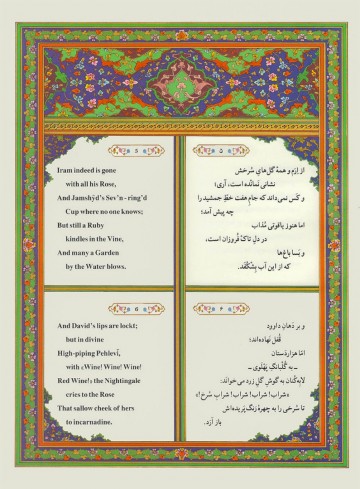 5
Iram indeed is gone
with all his Rose,
And Jamshýd's Sev'n-ring'd
Cup where no one knows;
But still a Ruby
kindles in the Vine,
And many a Garden
by the Water blows.
۵
از اِرَم و همهٔ گل‌های سُرخش
نشانی نمانده است، آری؛
و کَس نمی‌داند که جامِ هفت خطِ جمشید را
چه پیش آمد؛
اما هنوز یاقوتی مُذاب
در دلِ تاک فُروزان است،
و بَسا باغ‌ها
که از این آب بِشکُفَد.
And David's lips are lockt;
but in divine
High-piping Pehleví,
with «Wine! Wine! Wine!
Red Wine!» the Nightingale
cries to the Rose
That sallow cheek of hers
to incarnadine.
۶
و بر دهانِ داوود
قُفل نهاده‌اند؛
امّا هزاردستان
ـ به گُلبانگِ پَهْلَوی ـ
لابه‌کنان به گوشِ گلِ زرد می‌خواند:
«شراب! شراب! شراب! شرابِ سُرخ!»
تا سُرخی را به چهرهٔ رَنگ‌پَریده‌اش
باز آرَد.